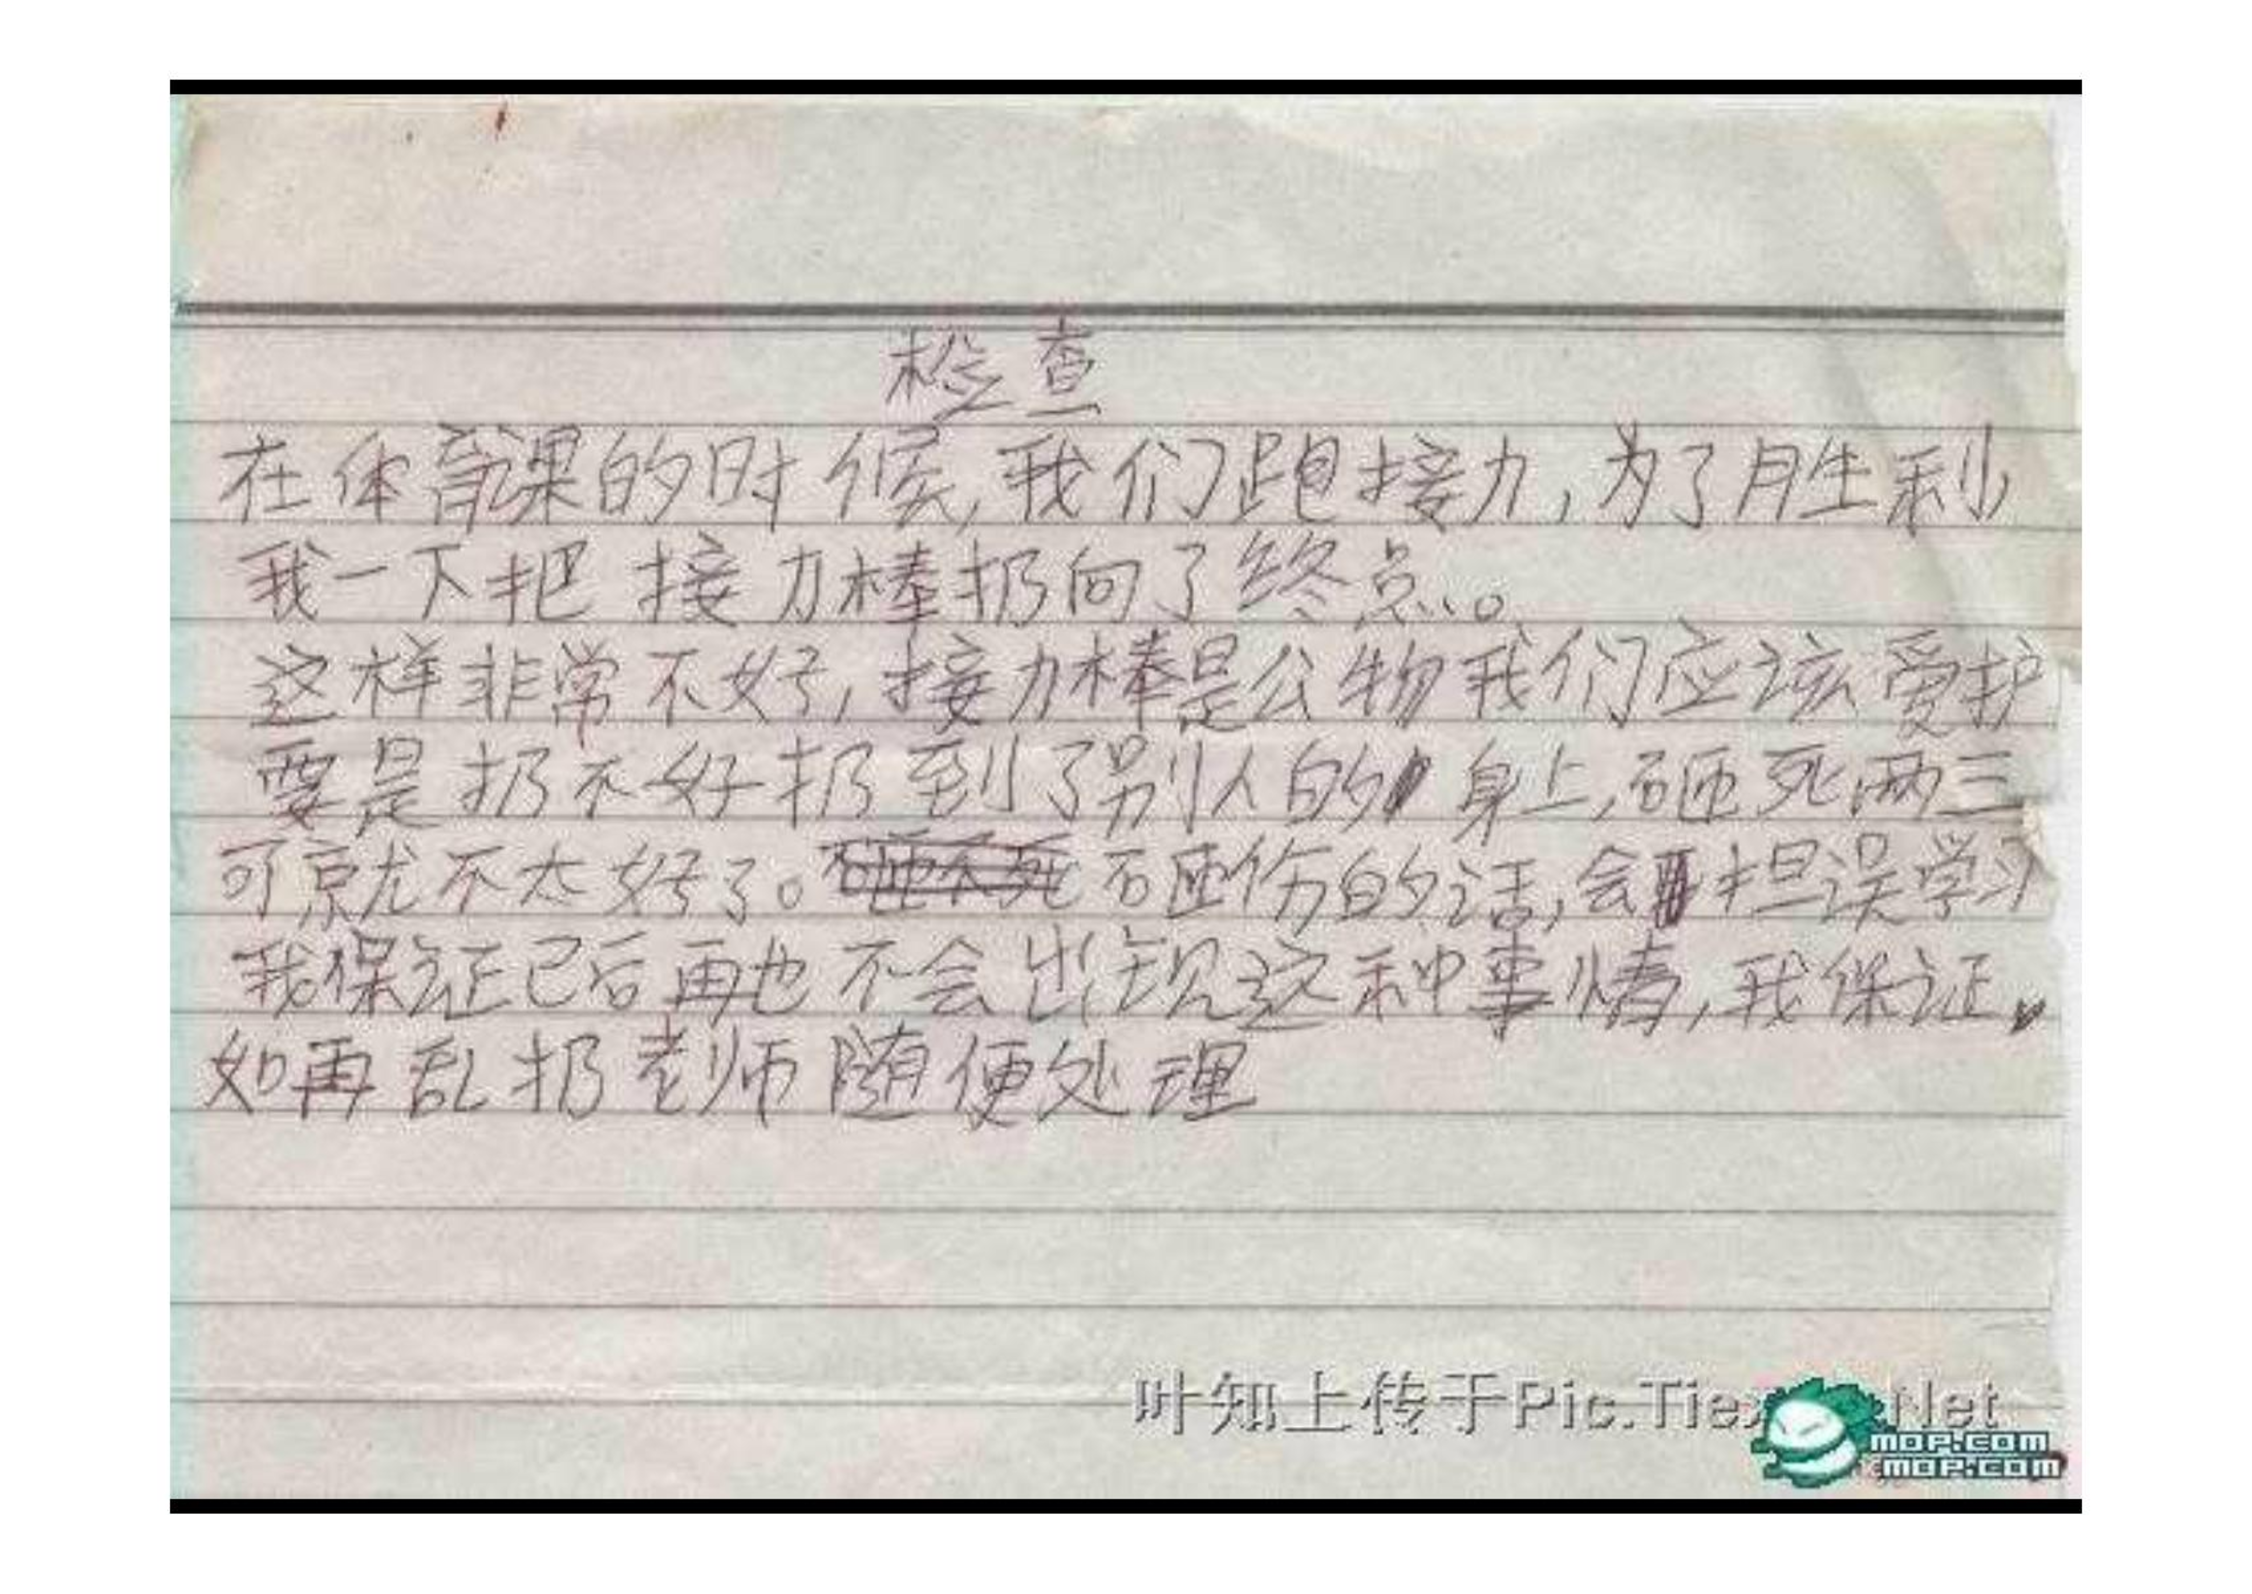 检查
在体育课的时候,我们跑接力,为了胜利
我一下把接力棒扔向了终点。
这样非常不好,接力棒是公物我们应该爱护
要是扔不好扔到了别人的身上,砸死两三
可就不太好了。砸不死砸伤的话,会担误学习
我保证已后再也不会出现这种事情,我保证。
如再乱扔老师随便处理
叶知上传于Pic.Tiex Net
mop.com
mop.com